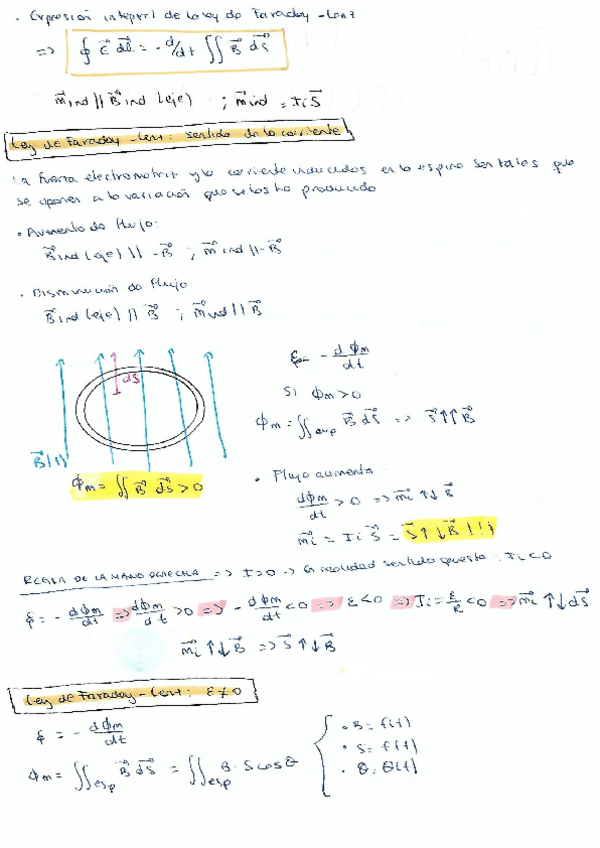 · Expresión integral de la ley de Faraday-Lenz
=> ∮ E⃗ dl⃗ = - d/dt ∬ B⃗ dS⃗
m⃗ ind || B⃗ ind (eje) ; m⃗ ind = Ii S⃗
Ley de Faraday-Lenz: sentido de la corriente
La fuerza electromotriz y la corriente inducidas en la espira son tales que
se oponen a la variación que se las ha producido
· Aumento de flujo:
B⃗ ind (eje) || -B⃗ ; m⃗ ind || -B⃗
· Disminución de flujo
B⃗ ind (eje) || B⃗ ; m⃗ ind || B⃗
dS⃗
B⃗(t)
Φm = ∬ B⃗ dS⃗ > 0
ε = - dΦm/dt
Si Φm > 0
Φm = ∬esp B⃗ dS⃗ => S⃗ ↑↑ B⃗
· Flujo aumenta:
dΦm/dt > 0 => m⃗i ↑↓ B⃗
m⃗i = Ii S⃗ = S⃗ ↑↓ B⃗ !!!
REGLA DE LA MANO DERECHA => I>0 -> En realidad sentido opuesto : Ii<0
ε = - dΦm/dt => dΦm/dt > 0 => - dΦm/dt < 0 => ε<0 => Ii = ε/R < 0 => m⃗i ↑↓ dS⃗
m⃗i ↑↓ B⃗ => S⃗ ↑↓ B⃗
Ley de Faraday-Lenz: ε ≠ 0
ε = - dΦm/dt
Φm = ∬esp B⃗ dS⃗ = ∬esp B · S cosθ
· B = f(t)
· S = f(t)
· θ = θ(t)